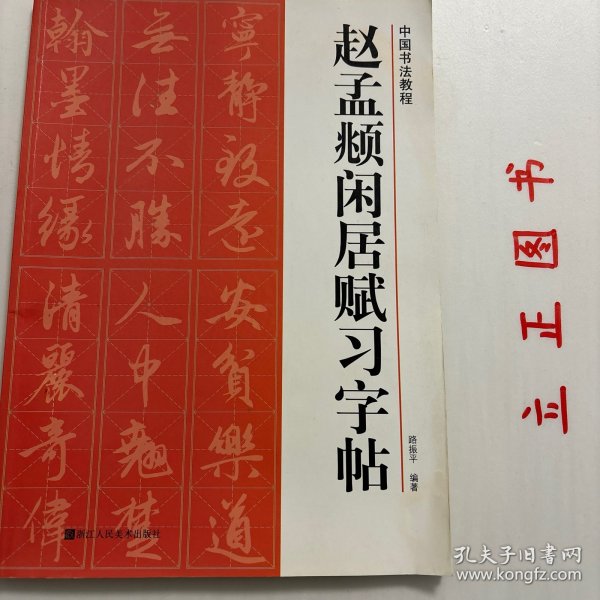 中国书法教程
赵孟頫闲居赋习字帖
路振平 编著
寧静致遠
安貧樂道
無往不勝
人中翹楚
翰墨情緣
清麗奇偉
浙江人民美术出版社
立正图书
孔夫子旧书网
www.kongfz.com